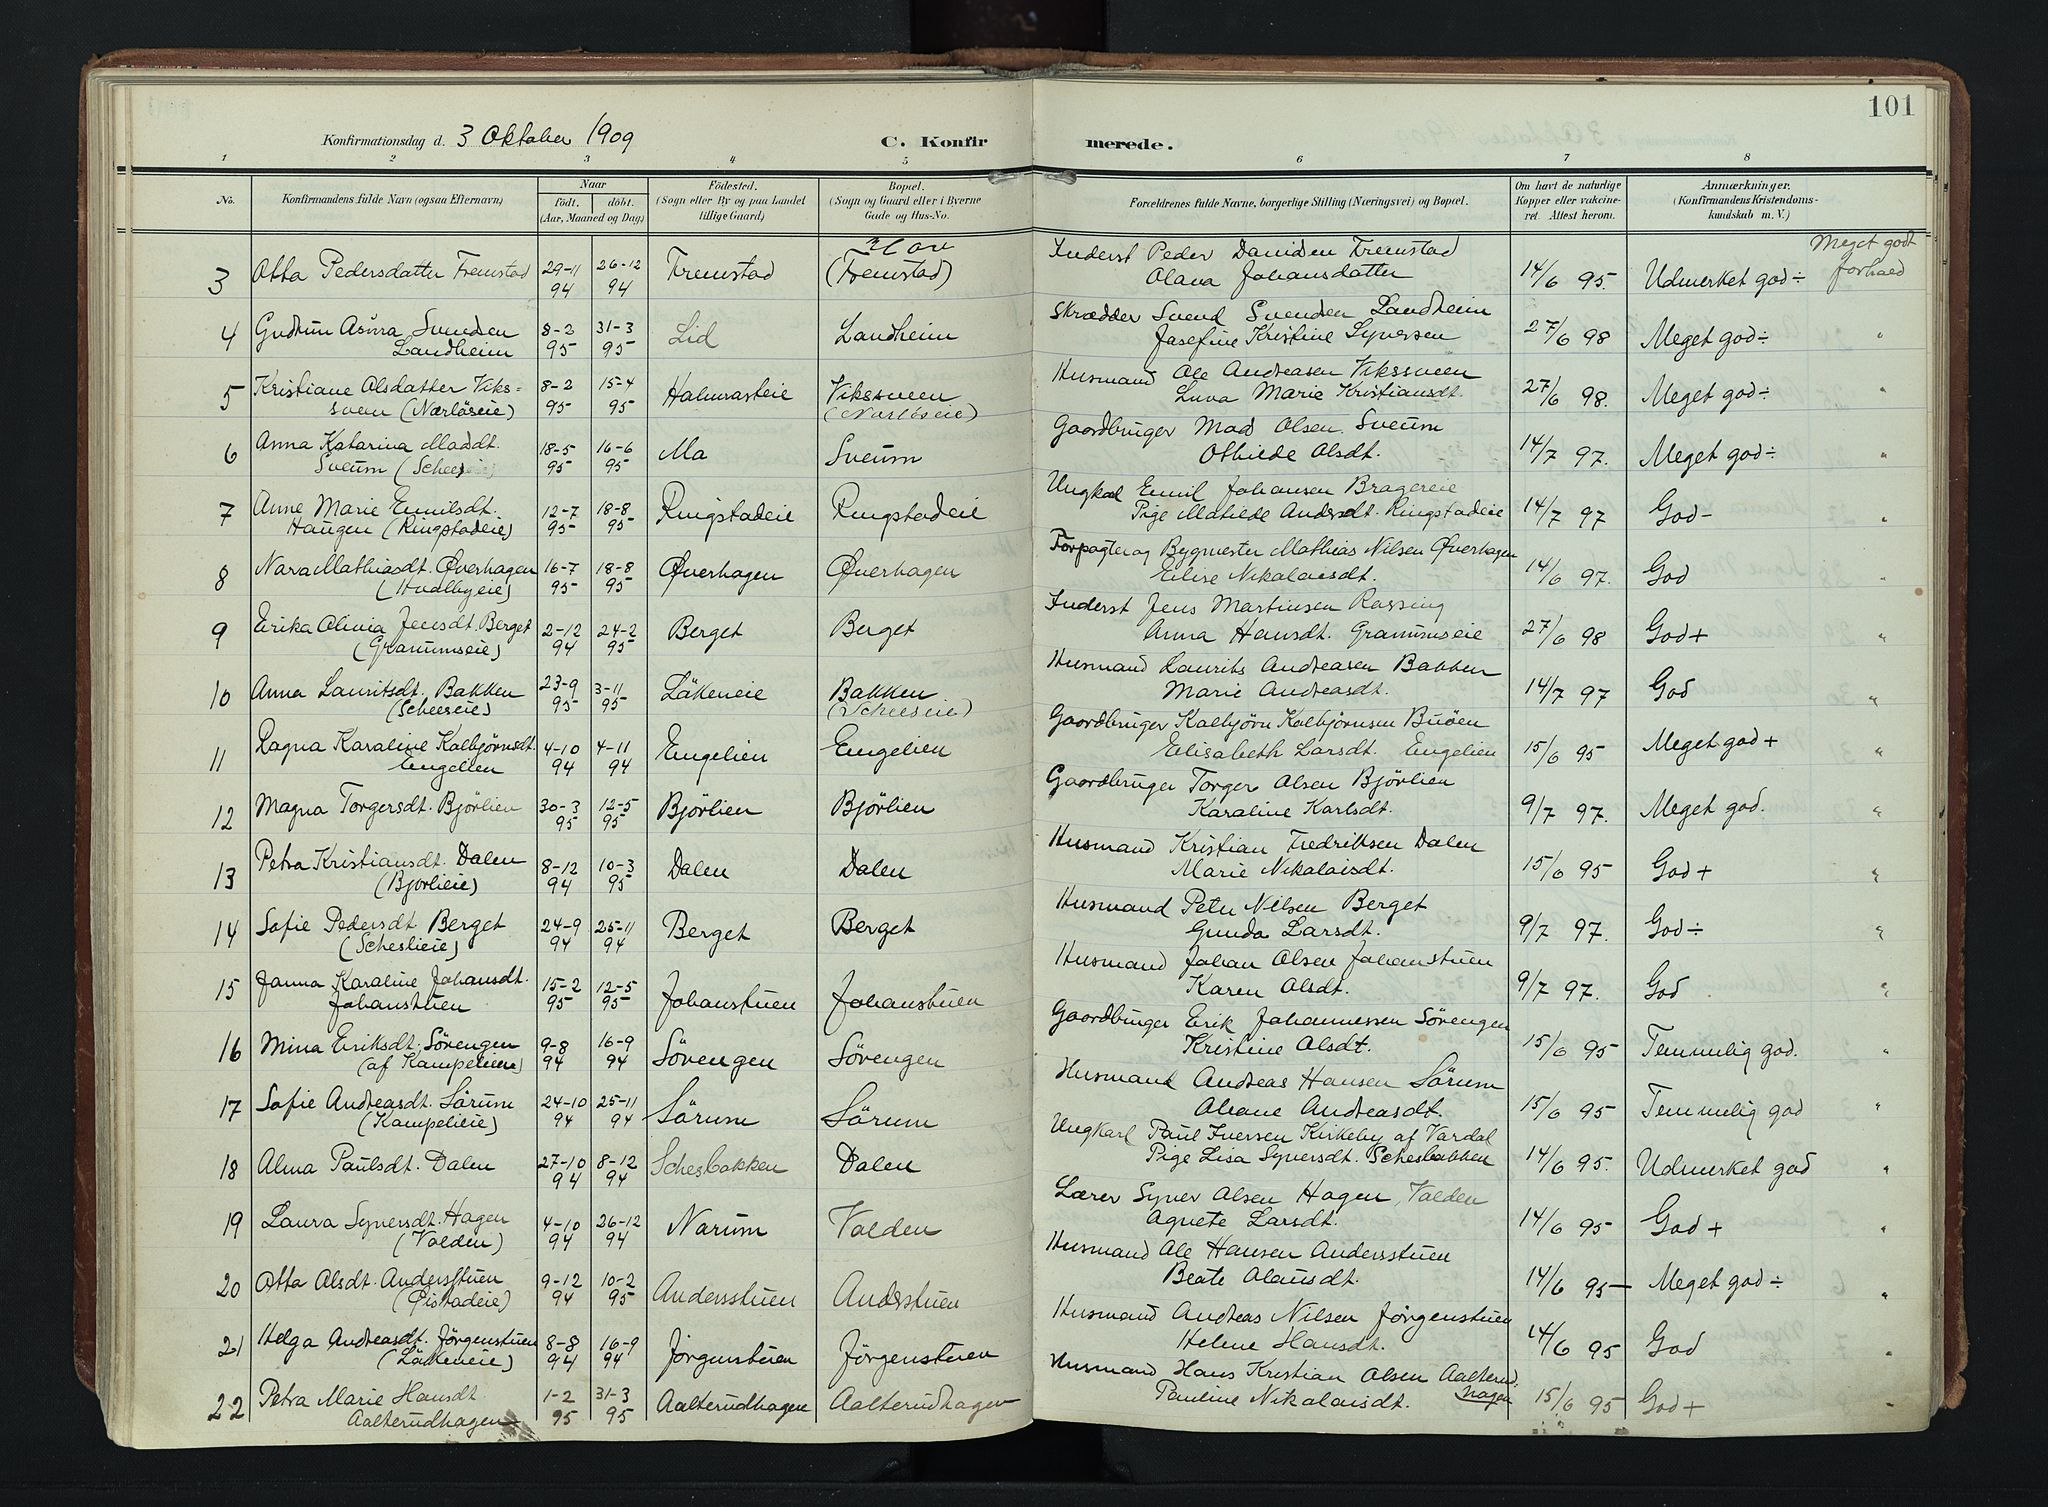 101
Konfirmationsdag d. 3 Oktober 1909
C. Konfir merede.
1 2 3 4 5 6 7 8
No.
Konfirmandens fulde Navn (ogsaa Efternavn)
Naar
født. døbt.
(Aar, Maaned og Dag)
Fødested.
(Sogn eller By og paa Landet
tillige Gaard)
Bopæl.
(Sogn og Gaard eller i Byerne
Gade og Hus-No.
Forældrenes fulde Navne, borgerlige Stilling (Næringsvei) og Bopæl.
Om havt de naturlige
Kopper eller vakcine-
ret. Attest herom.
Anmærkninger.
(Konfirmandens Kristendoms-
kundskab m. V.)
3 Otta Pedersdatter Fremstad 29-11 94 26-12 94 Fremstad (Fremstad)
Inderst Peder Fremstad
Olava Johansdatter 14/6 95. Udmerket god ÷ Meget godt forhold
4 Gudrun Svendsen
Landheim 8-2 95 31-3 95 Lid Landheim
Skrædder Svend Svendsen Landheim
Josefine Kristine Syversen 27/6 98 Meget god ÷ "
5 Kristiane Olsdatter Viks=
sveen (Nærløseie) 8-2 95 15-4 95 Vikssveen
(Nærløseie)
Husmand Ole Andreasen Vikssveen
Marie Kristiansdt. 27/6 98. Meget god ÷ "
6 Anna Katarina
Sveum 18-5 95 16-6 95 Mo Sveum
Gaardbruger Olsen Sveum
Othilde Olsdt. 14/7 97. Meget god ÷ "
7 Anne Marie Emilsdt.
Haugen (Ringstadeie) 12-7 95 18-8 95 Ringstadeie Ringstadeie
Ungkarl Emil Johansen Bragereie
Pige Matilde Andersdt. Ringstadeie 14/7 97 God - "
8 Nora Mathiasdt. Øverhagen
(Hvalbyeie) 16-7 95 18-8 95 Øverhagen Øverhagen
Forpagter og Bygmester Mathias Nilsen Øverhagen
Elise Nikolaisdt. 14/6 97. God "
9 Erika Olivia Jensdt. Berget
(Granumseie) 2-12 94 24-2 95 Berget Berget
Inderst Jens Martinsen
Anna Hansdt. Granumseie 27/6 98 God + "
10 Anna Lauritsdt. Bakken
(Scheeseie) 23-9 95 3-11 95 Låkeneie Bakken
(Scheeseie)
Husmand Laurits Andreasen Bakken
Marie Andreasdt. 14/7 97 God "
11 Ragna Karaline Kolbjørnsdt.
Engelien 4-10 94 4-11 94 Engelien Engelien
Gaardbruger Kolbjørn Kolbjørnsen Buøen
Elisabeth Larsdt. Engelien 15/6 95 Meget god + "
12 Magna Torgersdt. Bjørlien 30-3 95 12-5 95 Bjørlien Bjørlien
Gaardbruger Torger Olsen Bjørlien
Karaline Karlsdt. 9/7 97. Meget god. "
13 Petra Kristiansdt. Dalen
(Bjørlieie) 8-12 94 10-3 95 Dalen Dalen
Husmand Kristian Fredriksen Dalen
Marie Nikolaisdt. 15/6 95 God + "
14 Sofie Pedersdt Berget
(Scheslieie) 24-9 94 25-11 94 Berget Berget
Husmand Peter Nilsen Berget
Gunda Larsdt. 9/7 97. God ÷ "
15 Janna Karaline Johansdt.
Johanstuen 15-2 95 12-5 95 Johanstuen Johanstuen
Husmand Johan Olsen Johanstuen
Karen Olsdt. 9/7 97. God "
16 Mina Eriksdt. Sörengen
(af Kampelieie) 9-8 94 16-9 94 Sörengen Sörengen
Gaardbruger Erik Johannessen Sörengen
Kristine Olsdt. 15/6 95 Temmelig god. "
17 Sofie Andreasdt. Sörum
(Kampelieie) 24-10 94 25-11 94 Sörum Sörum
Husmand Andreas Hansen Sörum
Oleane Andreasdt. 15/6 95 Temmelig god "
18 Alma Paulsdt. Dalen 27-10 94 8-12 94 Schesbakken Dalen
Ungkarl Paul Iversen Kirkeby af Vardal
Pige Lisa Syversdt. Schesbakken 14/6 95. Udmerket god "
19 Laura Syversdt. Hagen
(Volden) 4-10 94 26-12 94 Narum Volden
Lærer Syver Olsen Hagen, Volden
Agnete Larsdt. 14/6 95 God + "
20 Otta Olsdt. Andersstuen
(Qistadeie) 9-12 94 10-2 95 Andersstuen Anderstuen
Husmand Ole Hansen Andersstuen
Beate Olausdt. 14/6 95 Meget god ÷ "
21 Helga Andreasdt. Jörgenstuen
(Låkeneie) 8-8 94 16-9 94 Jörgenstuen Jörgenstuen
Husmand Andreas Nilsen Jörgenstuen
Helene Hansdt. 14/6 95 God "
22 Petra Marie Hansdt
Aalterudhagen 1-2 95 31-3 95 Aalterudhagen Aalterudhagen
Husmand Hans Kristian Olsen Aalterud-
hagen
Pauline Nikolaisdt. 15/6 95 God + "